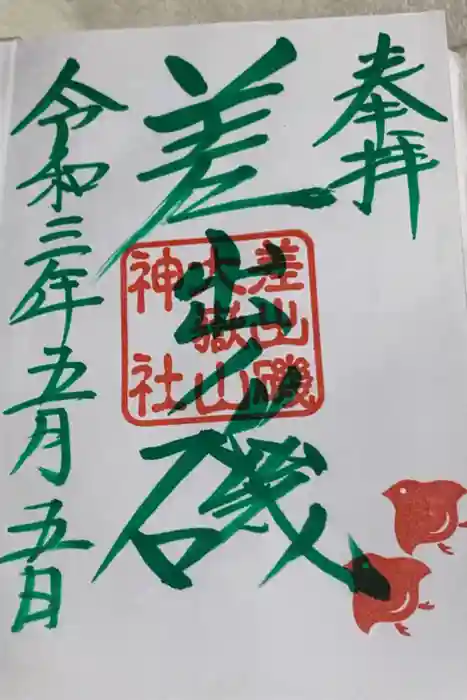 奉拝
差出ノ磯
差出磯
大嶽山
神社
令和三年五月五日